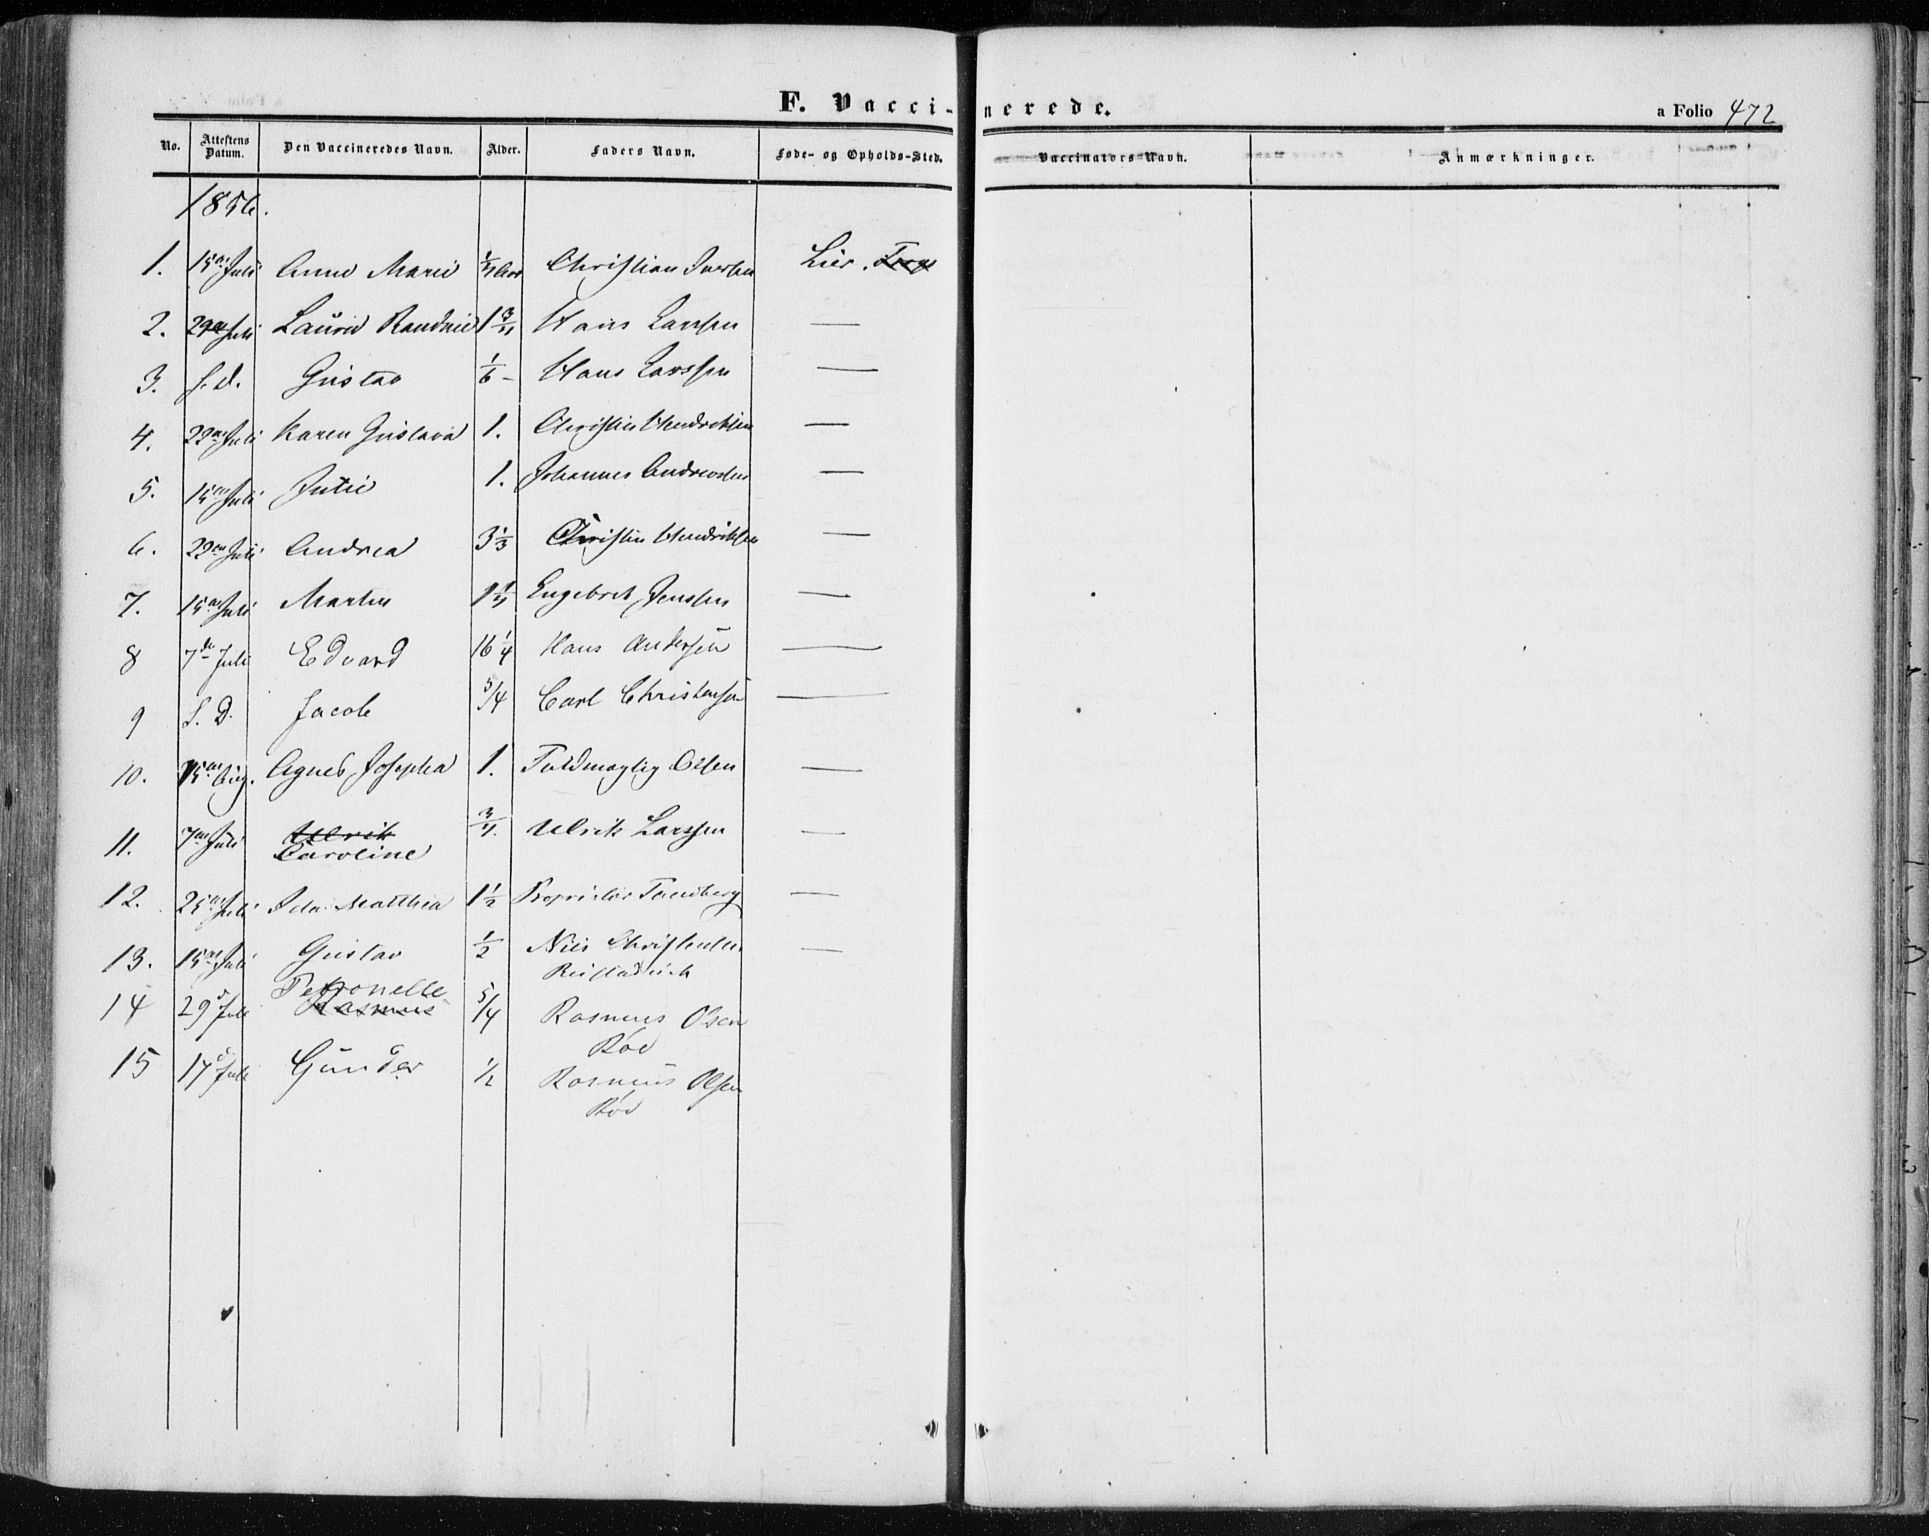 F. Vaccinerede.
a Folio 472
No. Attestens Datum. Den Vaccineredes Navn. Alder. Faders Navn. Føde- og Opholds-Sted. Vaccinators Navn. Anmærkninger.
1856.
1. 15de Juli Anne Marie Christian Iversen Lier.
2. 29de Juli 1 Hans Larsen —
3. S. d. Gustav 1/6 - Hans Larssen —
4. 22de Juli Karen Gustava 1. Christian Hendriksen —
5. 15de Juli Julie 1. Johannes Andreasen —
6. 22de Juli Andrea 3 1/3 Christian Hendriksen —
7. 15de Juli Martin Engebret Jensen —
8 7de Juli Edvard 16 1/4 Hans Andersen —
9 S. D. Jacob 5/4 Carl Christensen —
10. 15de Aug. Agnes Josepha 1. Fuldmægtig Olsen —
11. 7de Juli Ulrik 3/4. Ulrik Larssen —
Caroline
12. 25de Juli Ida Matthea 1 1/2 Proprietær Tandberg —
13. 15de Juli Gustav 1/2 Niels Christensen —
Petronelle
14 29d Juli Rasmus 5/4 Rasmus Olsen
Röd
15 17d Juli Gunder 1/2 Rasmus Olsen
Röd